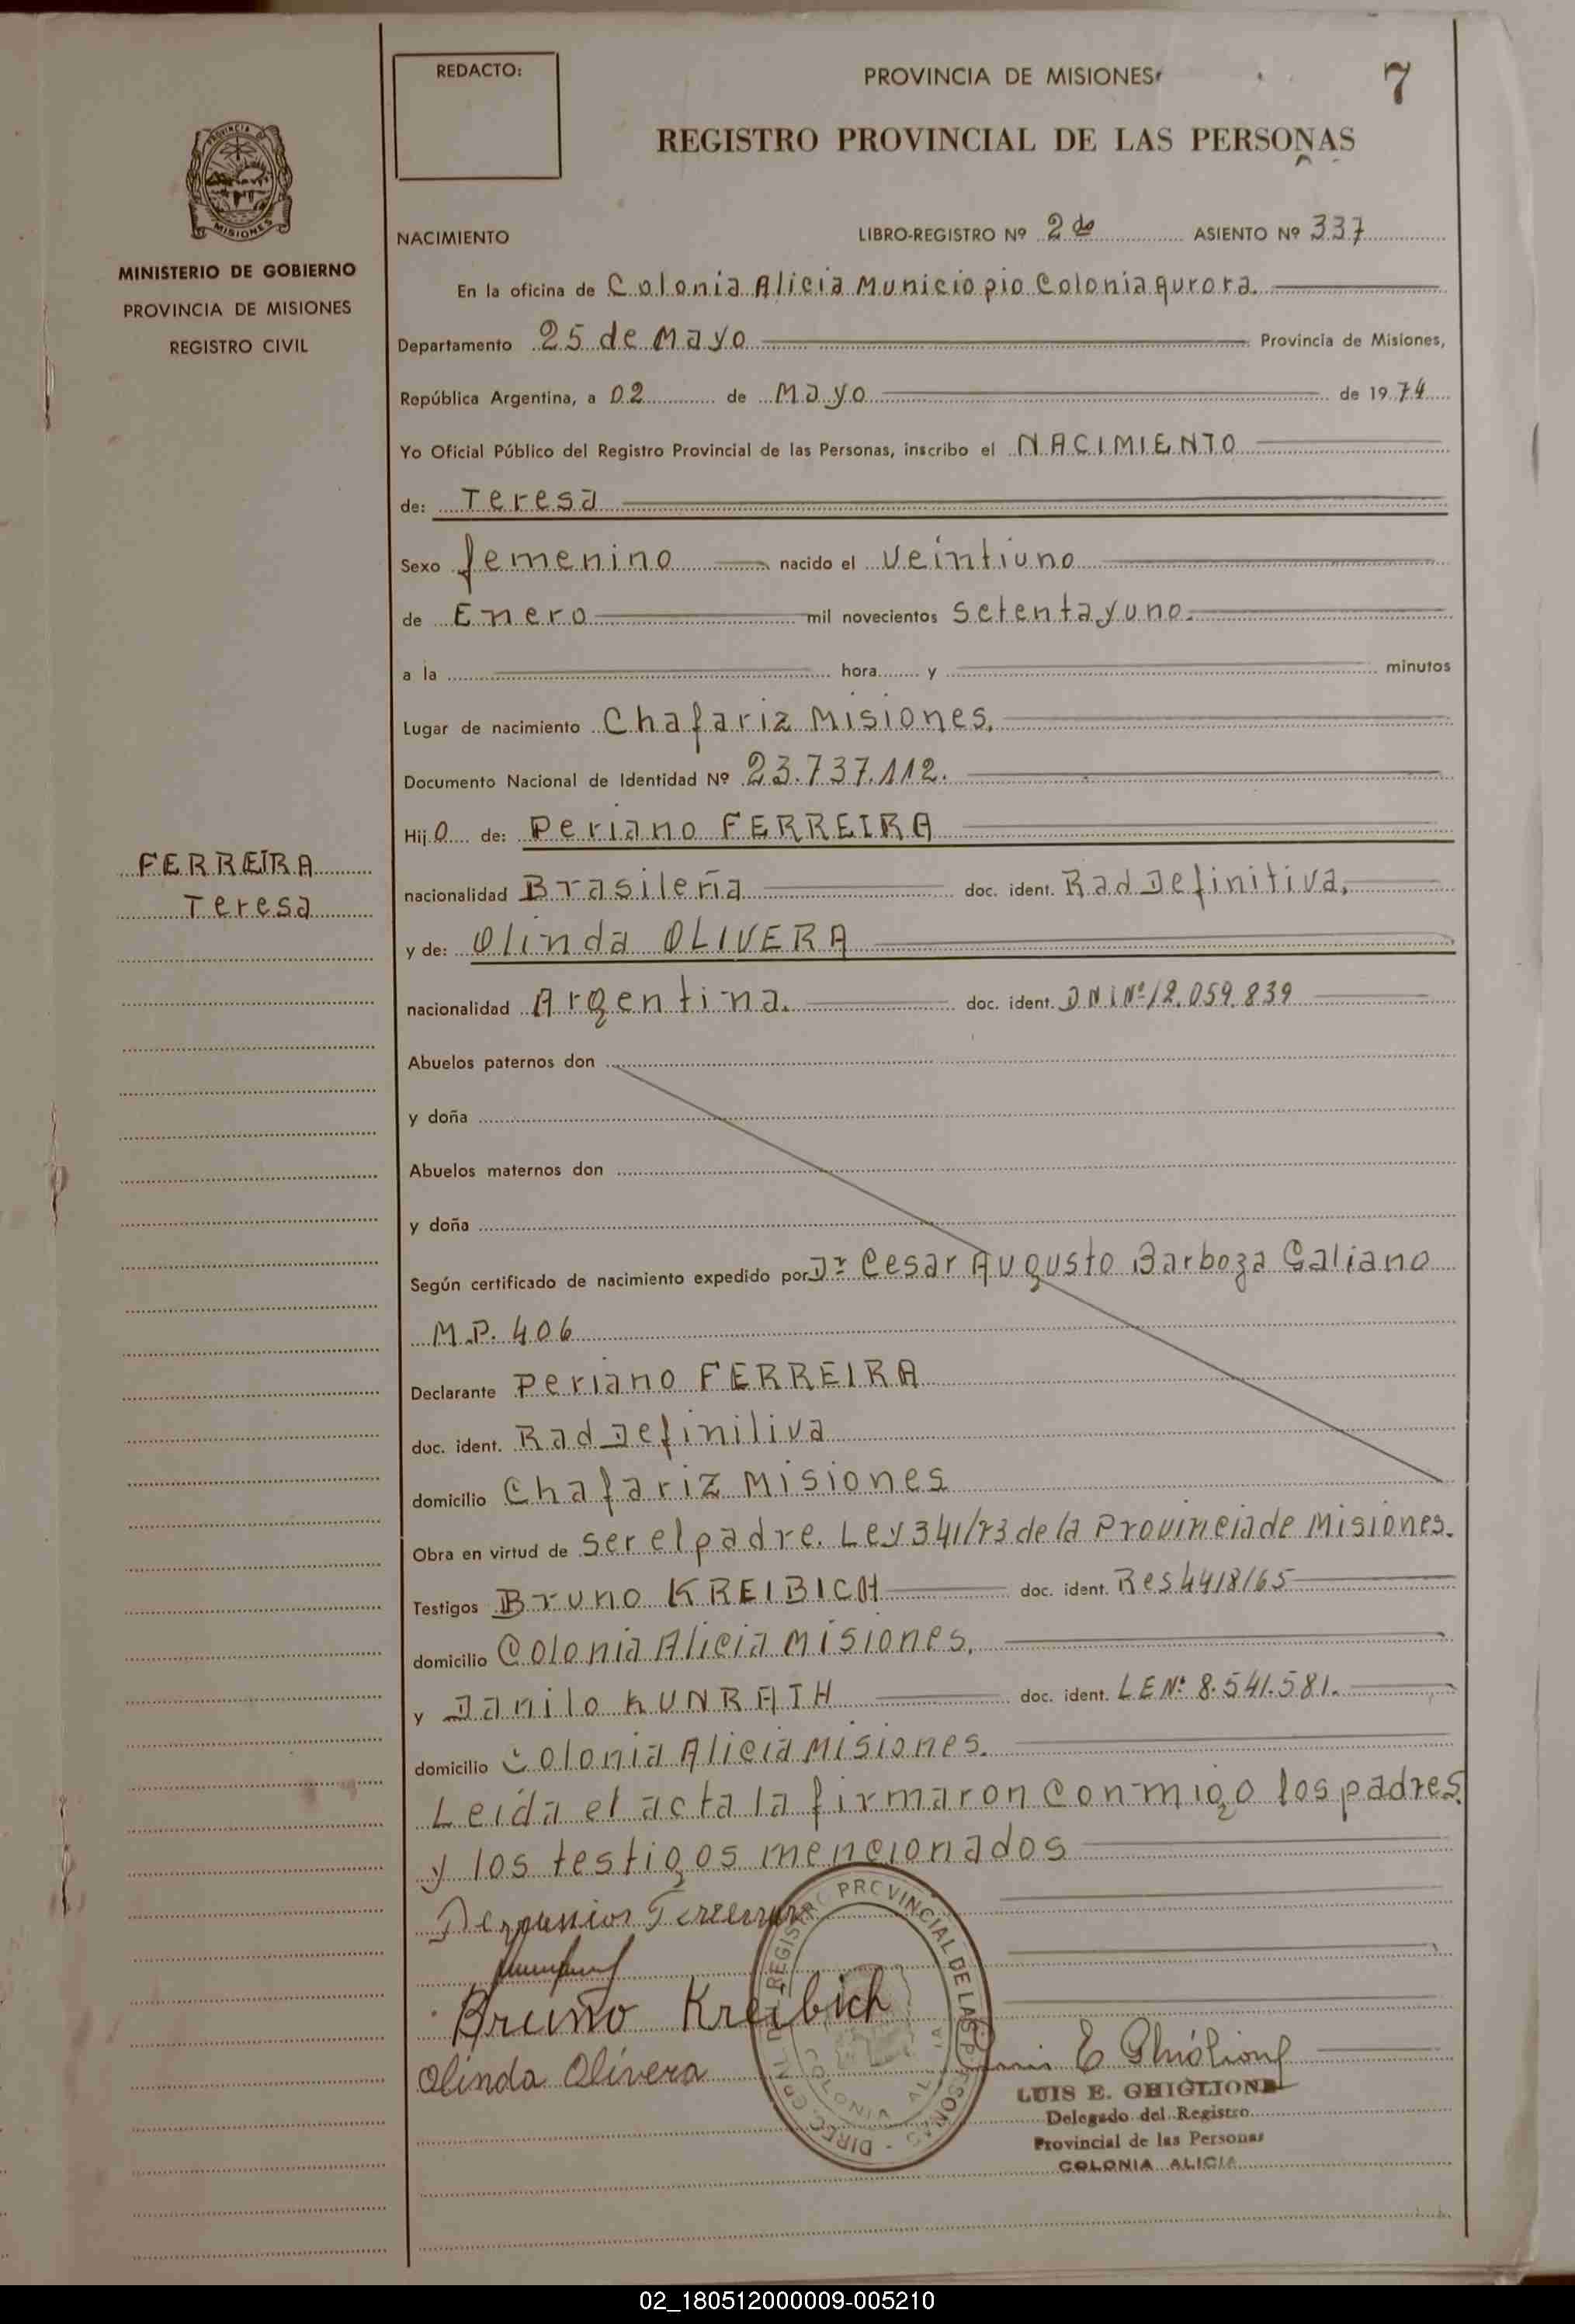 REDACTO:
PROVINCIA DE MISIONES
7
REGISTRO PROVINCIAL DE LAS PERSONAS
PROVINCIA DE
MISIONES
MINISTERIO DE GOBIERNO
PROVINCIA DE MISIONES
REGISTRO CIVIL
NACIMIENTO LIBRO-REGISTRO Nº 2do ASIENTO Nº 337
En la oficina de Colonia Alicia Municiopio Colonia aurora.
Departamento 25 de Mayo Provincia de Misiones,
República Argentina, a 02 de Mayo de 1974
Yo Oficial Público del Registro Provincial de las Personas, inscribo el NACIMIENTO
de: Teresa
Sexo femenino nacido el Veintiuno
de Enero mil novecientos setenta y uno.
a la hora y minutos
Lugar de nacimiento Chafariz Misiones,
Documento Nacional de Identidad Nº 23.737.112.
Hijo de: Periano FERREIRA
FERREIRA
Teresa
nacionalidad Brasileña doc. ident. Rad Definitiva,
y de: Olinda OLIVERA
nacionalidad Argentina. doc. ident. DNI Nº 12.059.839
Abuelos paternos don
y doña
Abuelos maternos don
y doña
Según certificado de nacimiento expedido por Dr Cesar Augusto Barboza Galiano
M.P. 406
Declarante Periano FERREIRA
doc. ident. Rad Definiliva
domicilio Chafariz Misiones
Obra en virtud de ser el padre. Ley 341/73 de la Provincia de Misiones.
Testigos Bruno KREIBICH doc. ident. Res 4418/65
domicilio Colonia Alicia Misiones,
y Danilo KUNRATH doc. ident. LE Nº 8.541.581.
domicilio Colonia Alicia Misiones.
Leída el acta la firmaron conmigo los padres
y los testigos mencionados
Bruno Kreibich
Olinda Olivera
REGISTRO PROVINCIAL DE LAS PERSONAS
COLONIA ALICIA
Luis E Ghiglione
LUIS E. GHIGLIONE
Delegado del Registro
Provincial de las Personas
COLONIA ALICIA
02_180512000009-005210